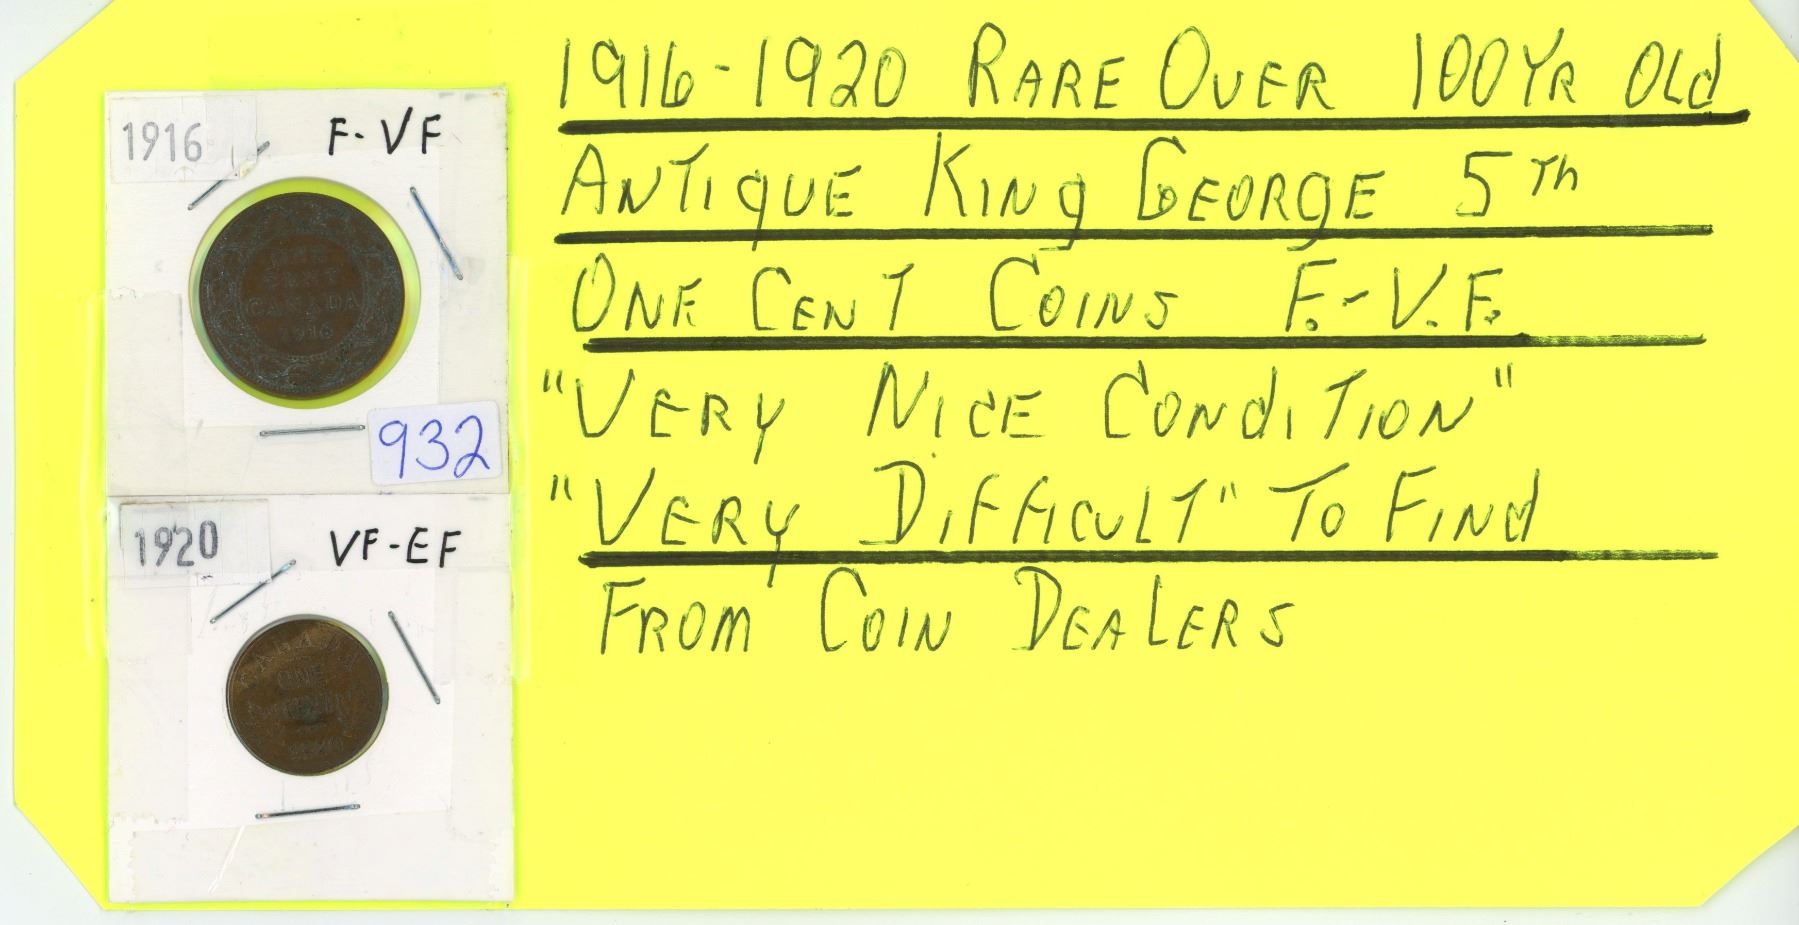 1916-1920 RARE OVER 100 YR OLd
ANTiqUE KINg GEORgE 5Th
ONE CENT COiNS F.-V.F.
"VERy NiCE CONdiTiON"
"VERy DiFFiCULT" TO FiNd
FROM COiN DEALERS
1916 F-VF
ONE
CENT
CANADA
1916
932
1920 VF-EF
CANADA
ONE
CENT
1920